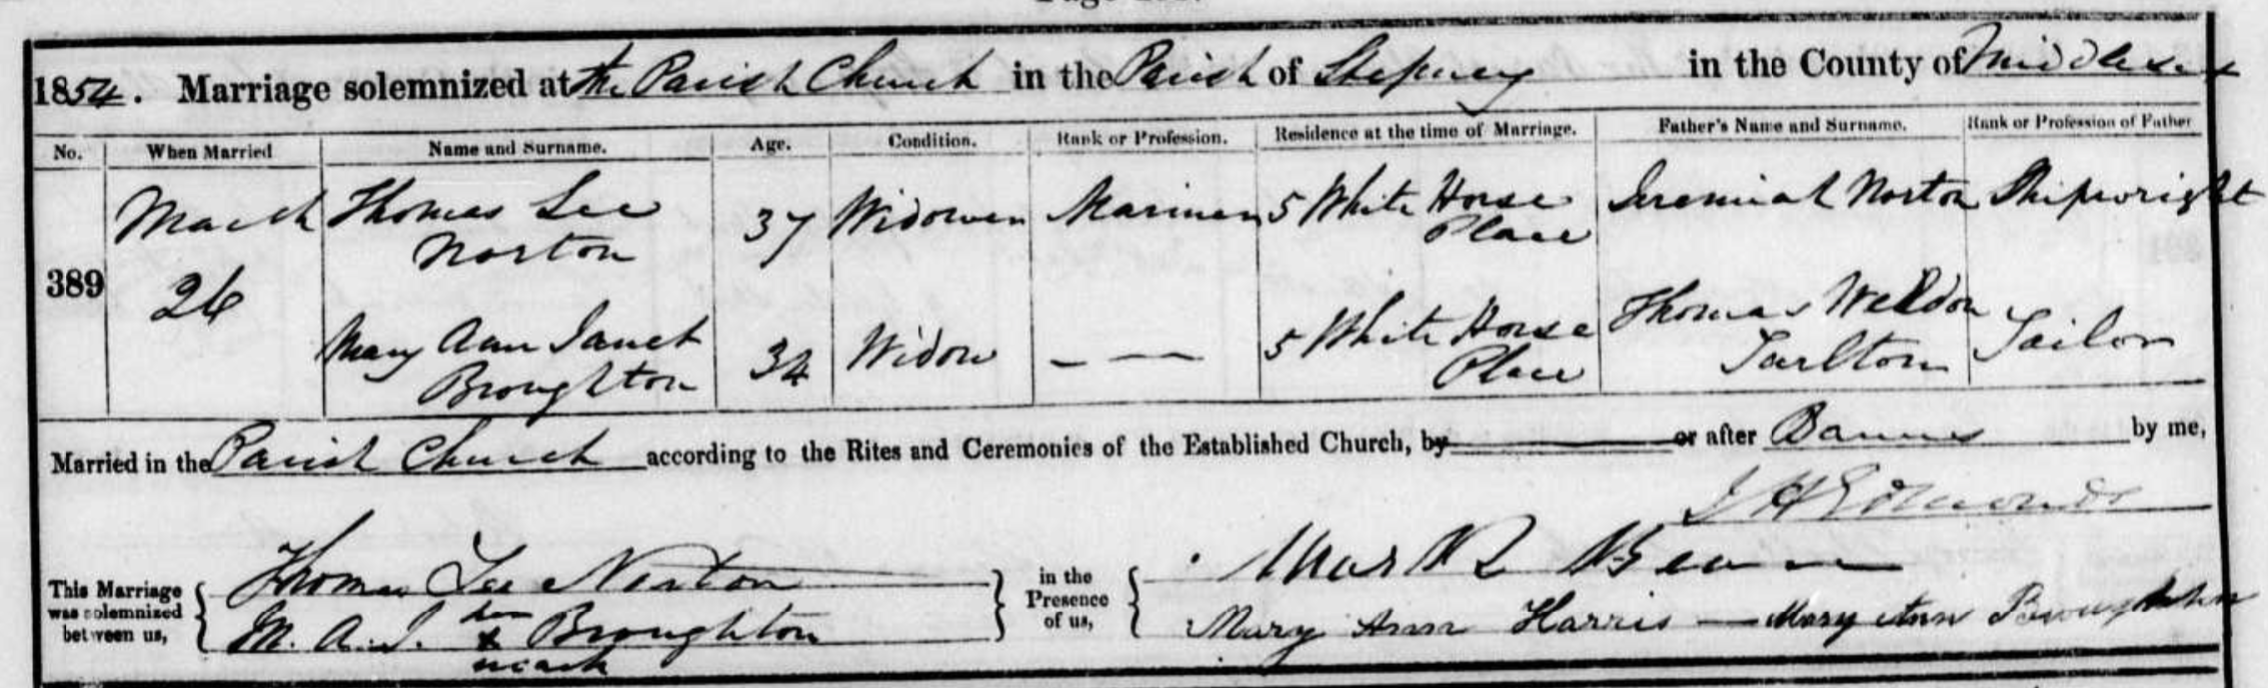 1854. Marriage solemnized at the Parish Church in the Parish of Stepney in the County of Middlesex
No. When Married Name and Surname. Age. Condition. Rank or Profession. Residence at the time of Marriage. Father's Name and Surname. Rank or Profession of Father
389
March 26
Thomas Lee Norton 37 Widower Mariner 5 White Horse Place Jeremiah Norton Shipwright
Mary Ann Janet Broughton 34 Widow — — 5 White Horse Place Thomas Weldon Tarlton Tailor
Married in the Parish Church according to the Rites and Ceremonies of the Established Church, by or after Banns by me,
J H Edmonds
This Marriage was solemnized between us,
Thomas Lee Norton
M. A. J. her x mark Broughton
in the Presence of us,
Mark
Mary Ann Harris — Mary Ann Broughton